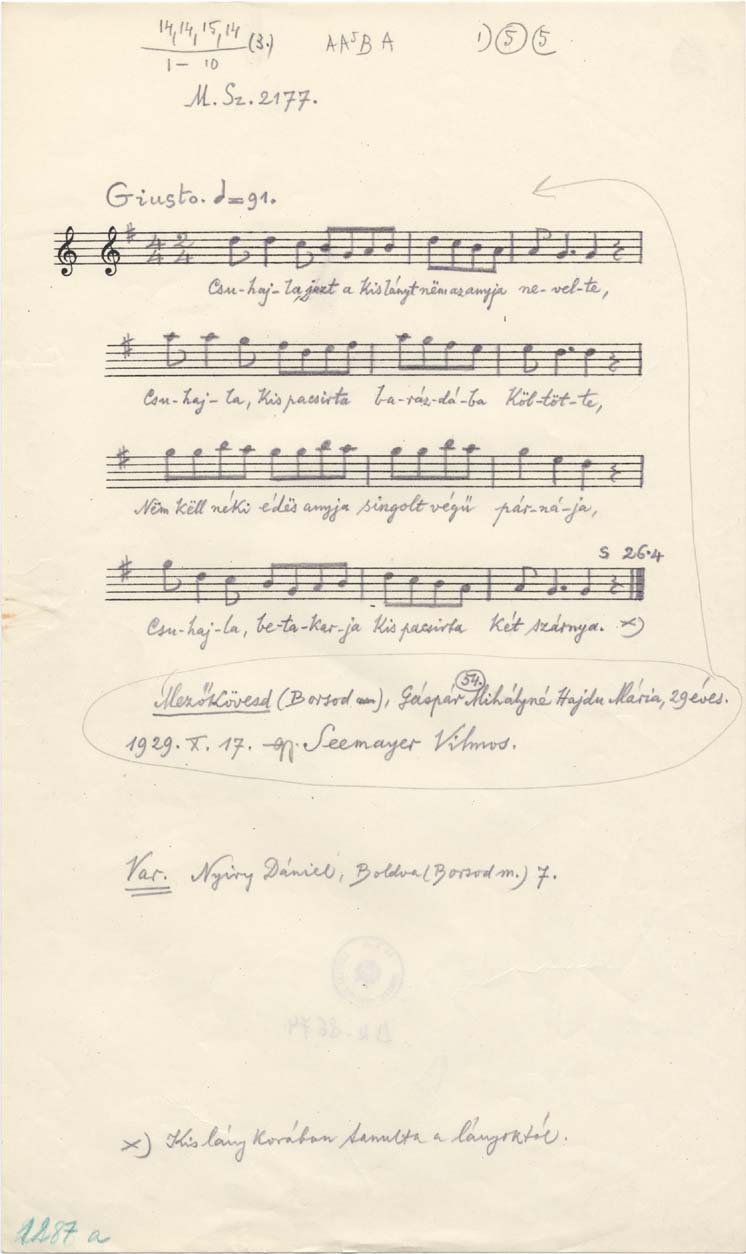 14,14,15,14 (3.) AA⁵BA 1) 5 5
1 – 10
M. Sz. 2177.
Giusto. d=91.
4/4 2/4
Csu-haj-la, jezt a kis lányt ném az anyja ne-vel-te,
Csu-haj-la, Kis pacsirta ba-ráz-dá-ba Köl-töt-te,
Ném këll néki édës anyja singolt végű pár-ná-ja,
S 26.4
Csu-haj-la, be-ta-kar-ja Kis pacsirta két szárnya. x)
54.
Mezőkövesd (Borsod m), Gáspár Mihályné Hajdu Mária, 29 éves.
1929. X. 17. gy. Seemayer Vilmos.
Var. Nyiry Dániel, Boldva (Borsod m.) 7.
x) Kis lány korában tanulta a lányoktól.
1287 a